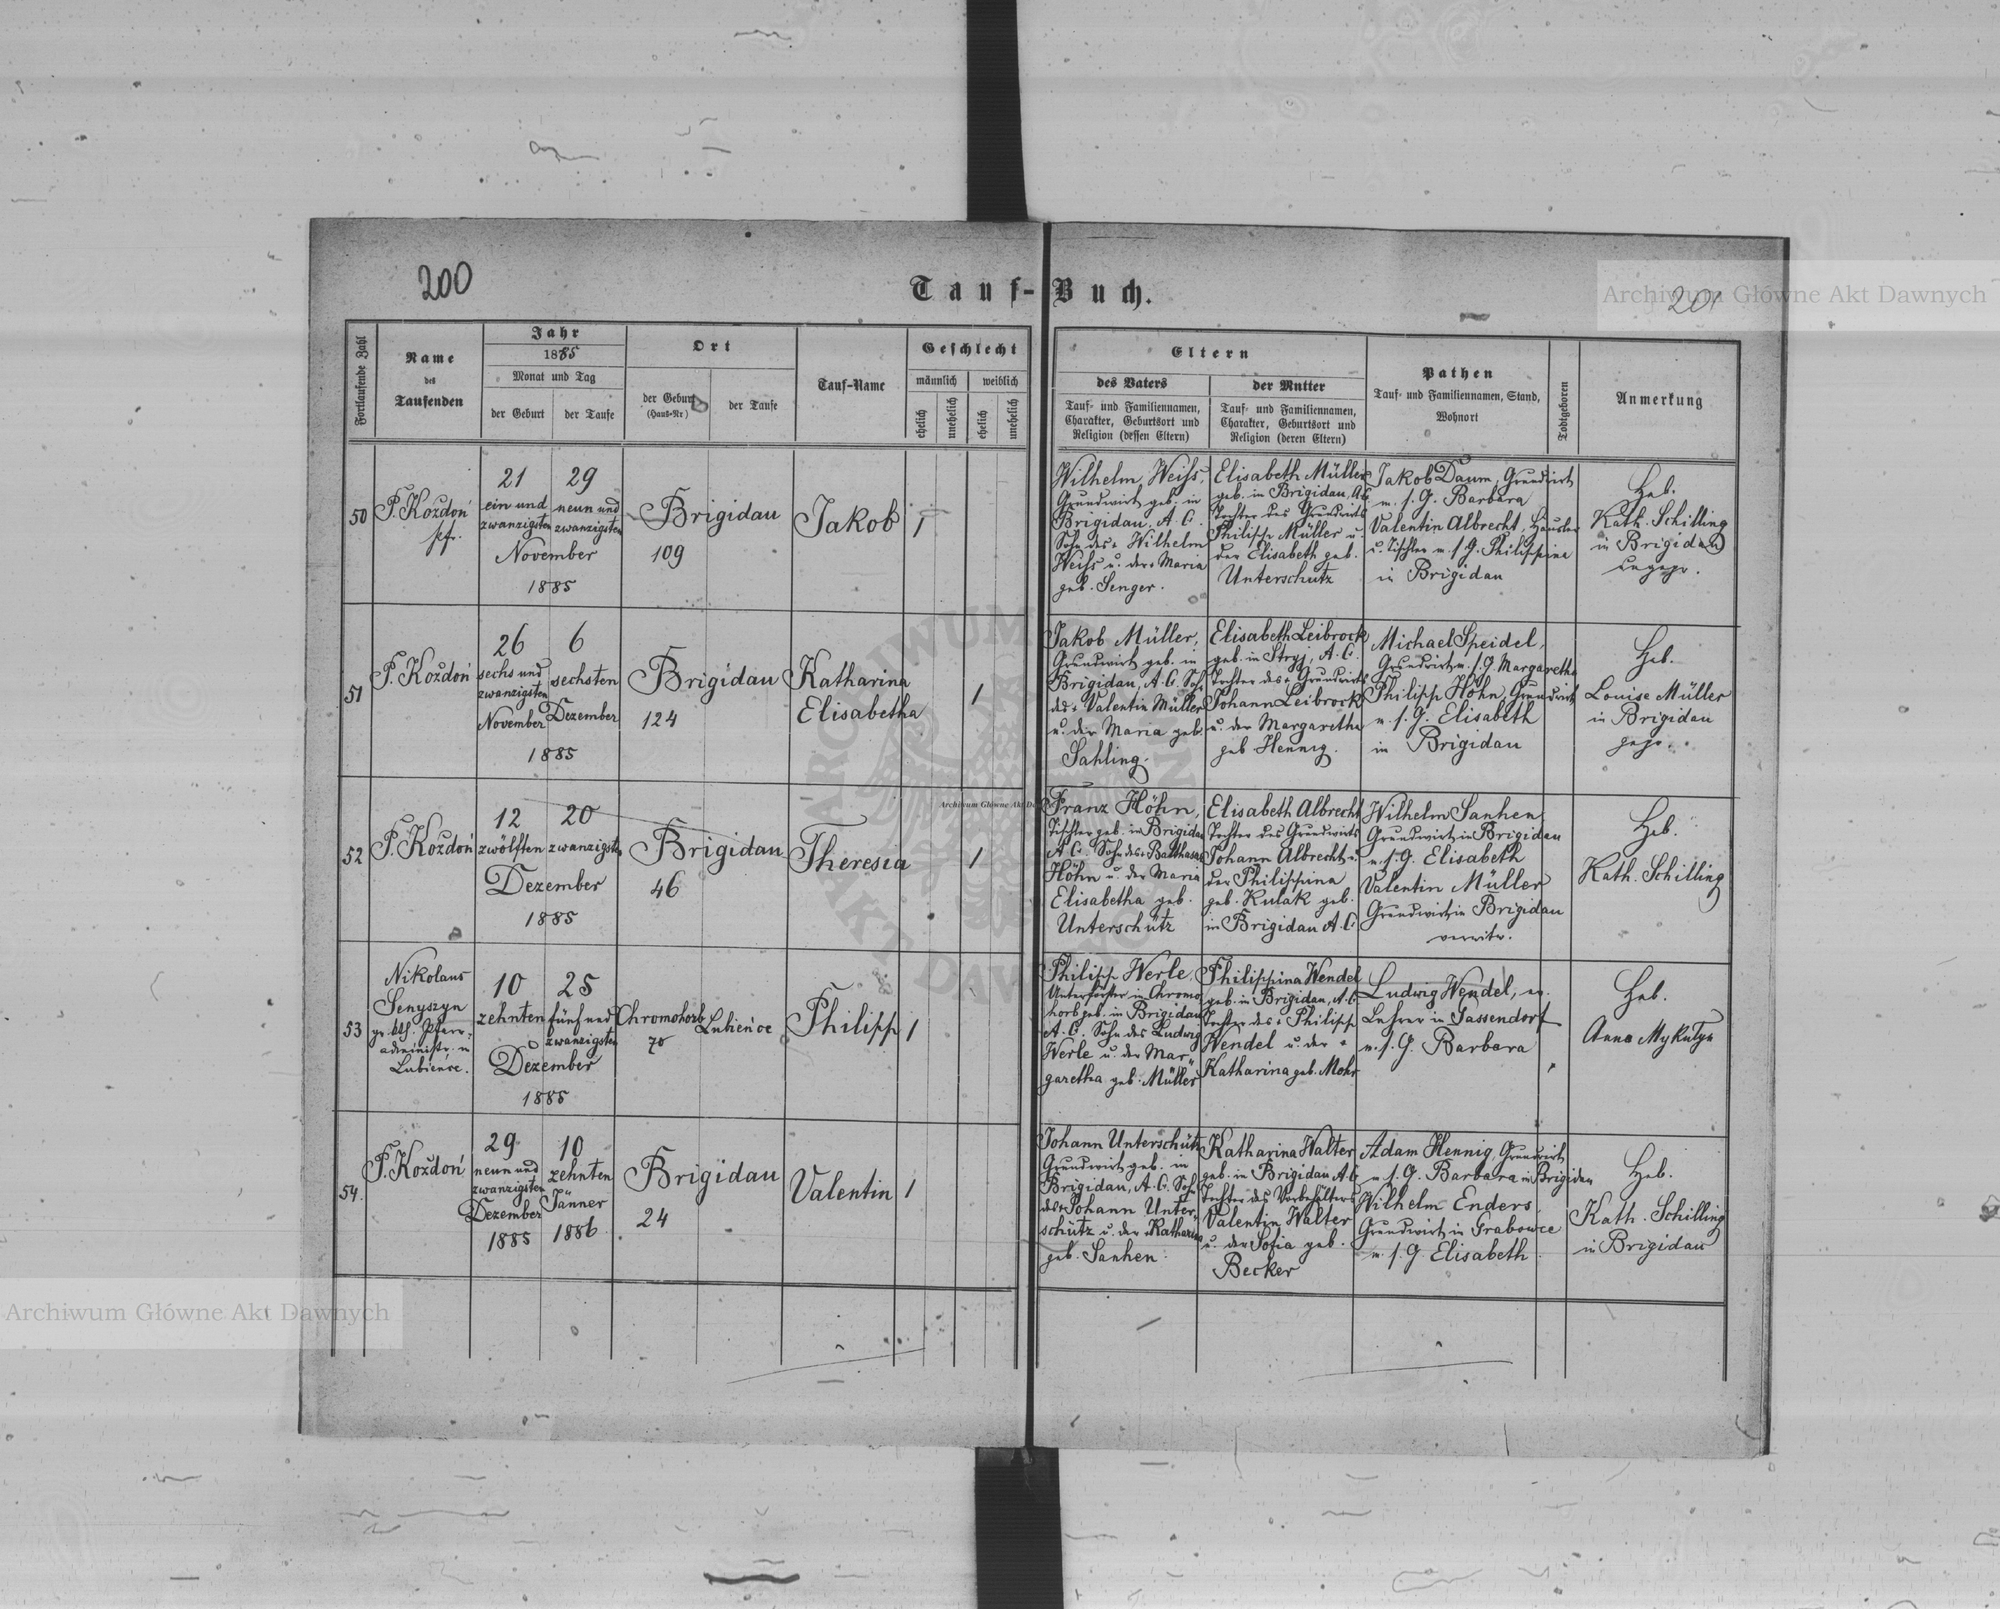 200
Tauf-Buch.
201
Fortlaufende Zahl
Name
des
Taufenden
Jahr
1885
Monat und Tag
der Geburt
der Taufe
Ort
der Geburt
(Haus-Nr)
der Taufe
Tauf-Name
Geschlecht
männlich
weiblich
ehelich
unehelich
ehelich
unehelich
Eltern
des Vaters
Tauf- und Familiennamen,
Charakter, Geburtsort und
Religion (dessen Eltern)
der Mutter
Tauf- und Familiennamen,
Charakter, Geburtsort und
Religion (deren Eltern)
Pathen
Tauf- und Familiennamen, Stand,
Wohnort
Todtgeboren
Anmerkung
50
P. Kozdoń
pfr.
21
ein und
zwanzigsten
29
neun und
zwanzigsten
November
1885
Brigidau
109
Jakob
1
Wilhelm Weiss,
Grundwirt geb. in
Brigidau, A. C.
Sohn des + Wilhelm
Weiss u. der + Maria
geb. Senger.
Elisabeth Müller
geb. in Brigidau, A.C.
Tochter des Grundwirts
Philipp Müller u.
der Elisabeth geb.
Unterschütz
Jakob Daum, Grundwirt
m. s. G. Barbara
Valentin Albrecht, Häusler
u. Tischler m. s. G. Philippine
in Brigidau
Heb.
Kath. Schilling
in Brigidau
51
P. Kozdoń
26
sechs und
zwanzigsten
November
6
sechsten
Dezember
1885
Brigidau
124
Katharina
Elisabetha
1
Jakob Müller,
Grundwirt geb. in
Brigidau, A. C. Sohn
des + Valentin Müller
u. der Maria geb.
Sahling.
Elisabeth Leibrock
geb. in Stryj, A. C.
Tochter des + Grundwirts
Johann Leibrock
u. der Margaretha
geb. Hennig.
Michael Speidel,
Grundwirt m. s. G. Margaretha
Philipp Höhn, Grundwirt
m. s. G. Elisabeth
in Brigidau
Heb.
Louise Müller
in Brigidau
gepr.
52
P. Kozdoń
12
zwölften
20
zwanzigsten
Dezember
1885
Brigidau
46
Theresia
1
Franz Höhn,
Tischler geb. in Brigidau
A. C. Sohn des + Balthasar
Höhn u. der Maria
Elisabetha geb.
Unterschütz
Elisabeth Albrecht
Tochter des Grundwirts
Johann Albrecht u.
der Philippina
geb. Kulak geb.
in Brigidau A. C.
Wilhelm Sanhen
Grundwirt in Brigidau
m. s. G. Elisabeth
Valentin Müller
Grundwirt in Brigidau
verwitw.
Heb.
Kath. Schilling
53
Nikolaus
Senyszyn
gr. kth. Pfarr-
administr. in
Lubieńce.
10
zehnten
25
fünf und
zwanzigsten
Dezember
1885
Chromohorb
70
Lubieńce
Philipp
1
Philipp Werle,
Unterförster in Chromo-
horb geb. in Brigidau
A. C. Sohn des Ludwig
Werle u. der Mar-
garetha geb. Müller
Philippina Wendel
geb. in Brigidau, A. C.
Tochter des + Philipp
Wendel u. der +
Katharina geb. Mohr
Ludwig Wendel, ev.
Lehrer in Gassendorf
m. s. G. Barbara
Heb.
Anna Mykityn
54.
P. Kozdoń
29
neun und
zwanzigsten
Dezember
1885
10
zehnten
Jänner
1886
Brigidau
24
Valentin
1
Johann Unterschütz
Grundwirt geb. in
Brigidau, A. C. Sohn
des + Johann Unter-
schütz u. der + Katharina
geb. Sanhen.
Katharina Walter
geb. in Brigidau, A. C.
Tochter des Vorbehälters
Valentin Walter
u. der Sofia geb.
Becker
Adam Hennig, Grundwirt
m. s. G. Barbara in Brigidau
Wilhelm Enders
Grundwirt in Grabowce
m. s. G. Elisabeth
Heb.
Kath. Schilling
in Brigidau
Archiwum Główne Akt Dawnych
Archiwum Główne Akt Dawnych
Archiwum Główne Akt Dawnych
ARCHIWUM GŁÓWNE AKT DAWNYCH